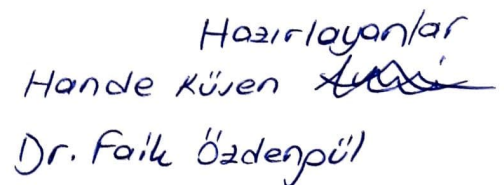 Hazırlayanlar
Hande Küsen
Dr. Faik Özdengül